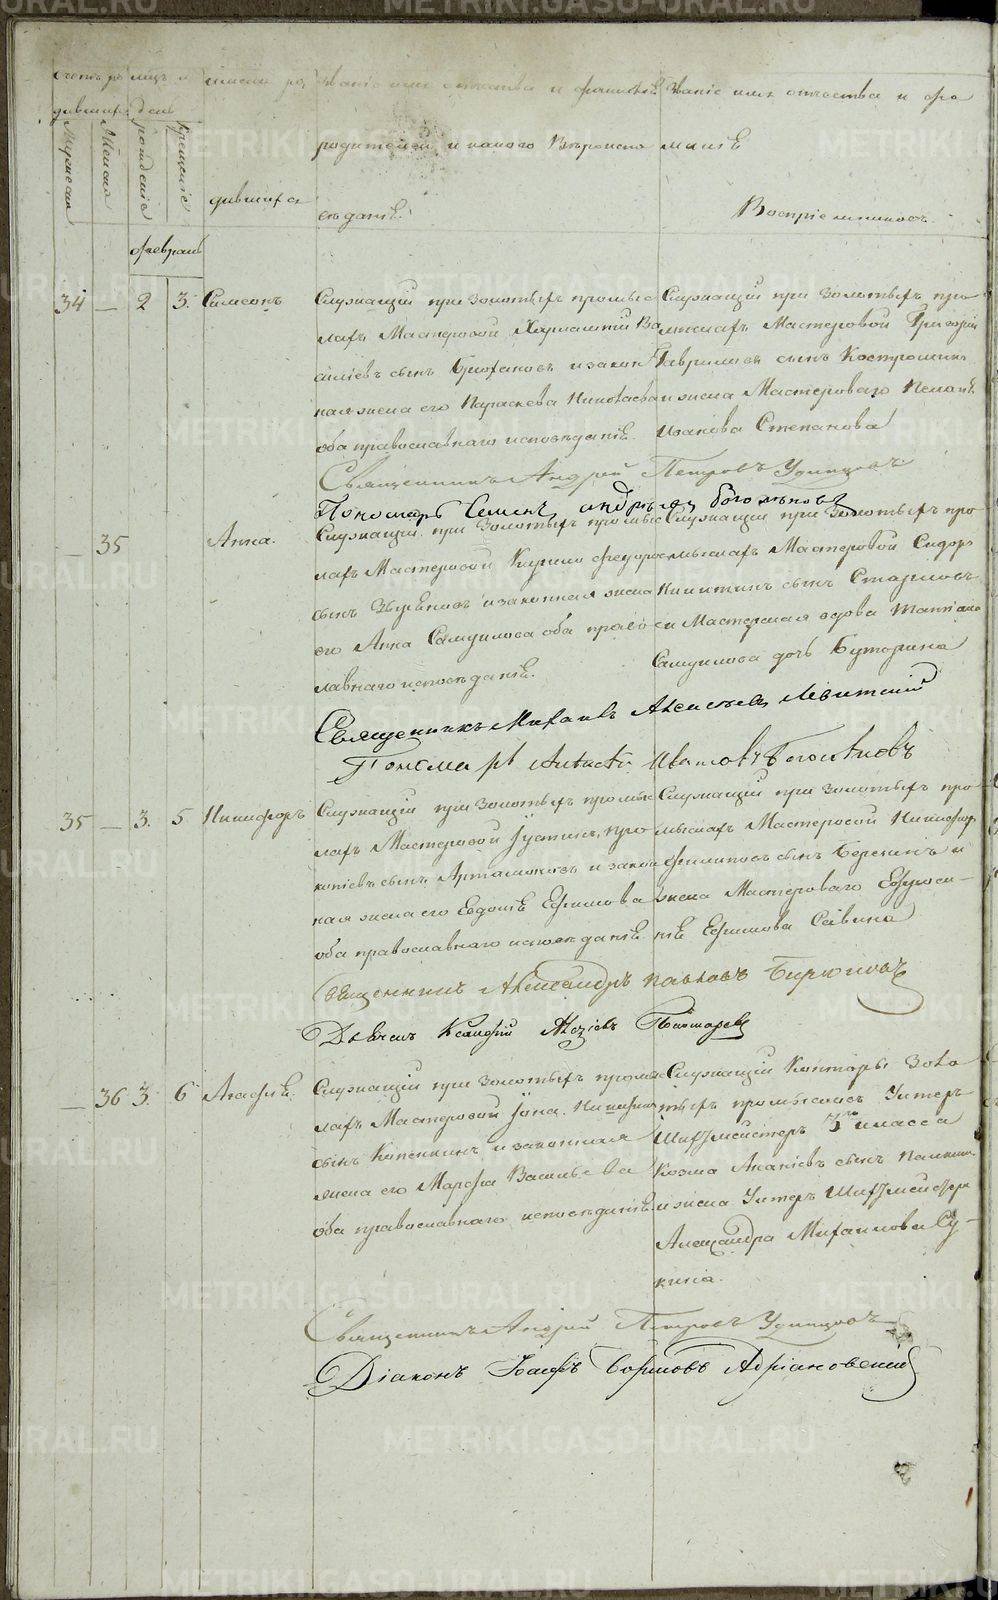 METRIKI.GASO-URAL.RU
Счетъ ро
имена ро
Званіе имя отчество и фамилія
Званіе имя отчество и фа
дившихся
родителей и какого Вѣроиспо
миліѣ
Мужеска
Женска
рожденіе
Крещеніе
дившихся
вѣданіѣ.
Воспріемниковъ
февраль
34 — 2 3. Симеонъ
Служащій при Золотыхъ промыс
лахъ Мастеровой Ва
сынъ и закон
ная жена его Параскева Николаева
оба православнаго исповѣданіѣ.
Служащій при Золотыхъ про
мыслахъ Мастеровой Григорій
Гавриловъ сынъ Костромин
и жена Мастероваго
Иванова Степанова
Священникъ Андрей Петровъ Удинцовъ
Пономарь Семенъ Андрѣевъ Богомоловъ
— 35 Анна.
Служащій при Золотыхъ промыс
лахъ Мастеровой Кирило Федоров
сынъ Зыряновъ и законная жена
его Анна Самуилова оба правос
лавнаго исповѣданіѣ.
Служащій при Золотыхъ про
мыслахъ Мастеровой Сидоръ
Никитинъ сынъ
и Мастерская вдова Татіана
Самуилова дочь Бутарина
Священникъ Михаилъ Алексѣевъ Левитскій
Пономарь Ивановъ Богомоловъ
35 — 3. 5 Никифоръ
Служащій при Золотыхъ промыс
лахъ Мастеровой Устинъ Про
копіевъ сынъ Артамоновъ и закон
ная жена его Евдокіѣ Ефимова
оба православнаго исповѣданіѣ
Служащій при Золотыхъ про
мыслахъ Мастеровой Никифор
Филиповъ сынъ Березинъ и
жена Мастероваго Ефроси
ніѣ Ефимова Савина
Священникъ Александръ Павловъ Бирюковъ
Дьячекъ Ксанфій Пономаревъ
— 36 3. 6 Агафіѣ.
Служащій при Золотыхъ промыс
лахъ Мастеровой Иона
сынъ Копенкинъ и законная
жена его Марфа Васильева
оба православнаго исповѣданіѣ.
Служащій Конторы Золо
тыхъ промысловъ Унтеръ
Шихтмейстеръ 3го класса
Козма Ананіевъ сынъ
и жена Унтеръ Шихтмейстера
Александра Михаилова Су
кина.
Священникъ Андрей Петровъ Удинцовъ
Діаконъ Іоасафъ Борисовъ Адріановскій